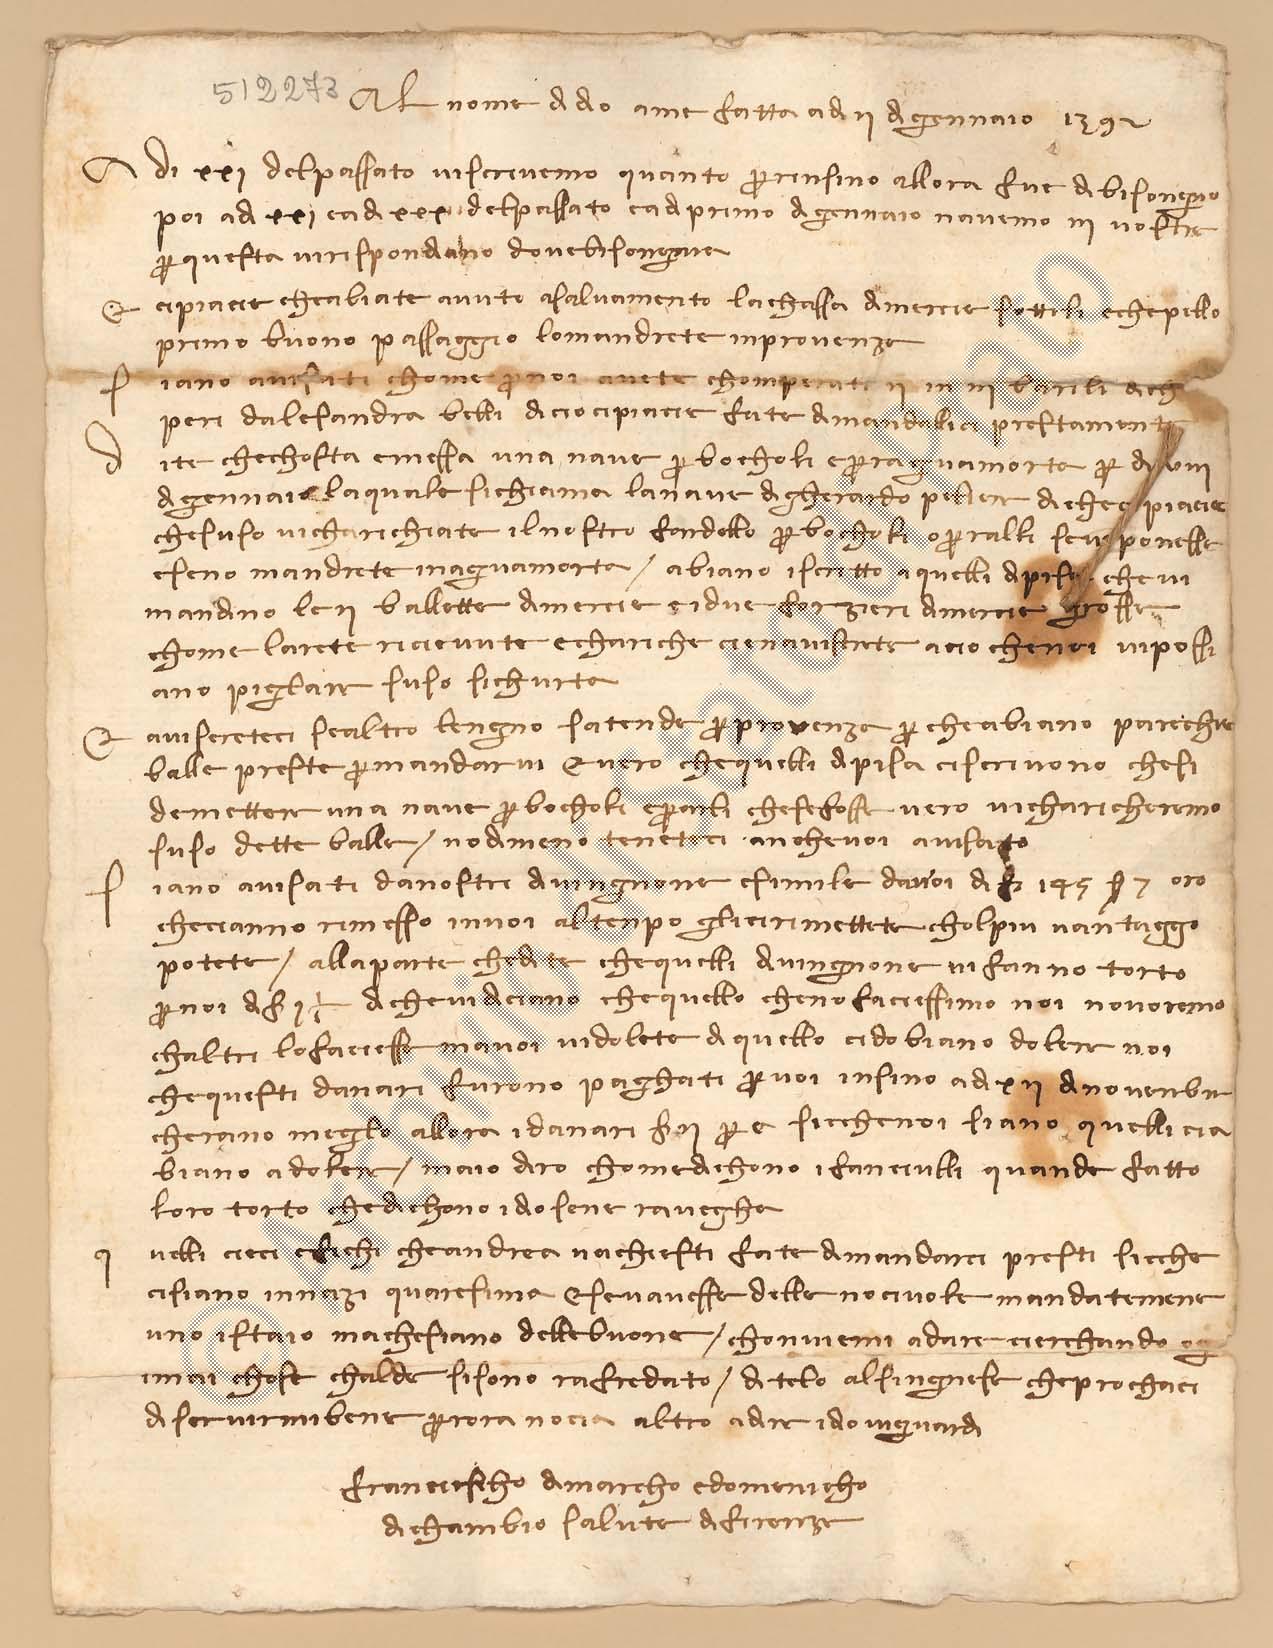 512273
Al nome d dio ame fatta ad ii di gennaio 1392
A di xxi del passato vi scrivemo quanto p insino allora fue di bisongnio
poi ad xxi e ad xxx del passato e ad primo di gennaio navemo iii vostre
p questa vi rispondano dove bisongnia
& ci piacie che abiate avuto a salvamento la chassa di mercie sottili e che pello
primo buono passaggio lo mandrete in provenza
s iano avisati chome p noi avete chomperati ii in iii barili di cha
peri da lesandra belli di cio ci piacie fate di mandallici prestamente
d ite che chosta e messa una nave p bocholi e p raguamorta p di viii
di gennaio la quale si chiama la nave di gherardo di che ci piacie
che suso vi charichiate il nostro fardello p bocholi o p ralli se vi ponesse
e se no mandrete in aguamorta / abiano iscritto a quelli di pisa che vi
mandino le ii ballette di mercie e i due forzieri di mercie grosse
chome larete ricievute e chariche cie navisirete acio che noi vi possi
ano pigliare suso sichurta
& aviserteci se altro lengno satende p provenza p che abiano parechie
balle preste p mandarvi & vero che quelli di pisa ci scrivono che si
de mettere una nave p bocholi e p arli che se fosse vero vi charicheremo
suso dette balle / nodimeno teneteci anche voi avisato
s iano avisati da nostri di vingnone e simile da voi di f 145 s 7 oro
che cieanno rimesso in voi al tenpo gli ci rimettete chol piu vantaggo
potete / alla parte che dite che quelli di vingnone vi fanno torto
p noi di f di che vi diciano che quello che no faciessimo noi no voremo
chaltri lo faciesse ma voi vi dolete di quello ci dobiano dolere noi
che questi danari furono paghati p voi insino ad xii di novenbre
cherano meglo allora i danari f ii p c sicche noi siano quelli cia
biano a dolere / ma io diro chome dichono i fanciulli quande fatto
loro torto che dichono idio sene ravegha
q uelli cieci e fichi che andrea va chiesti fate di mandarci presti sicche
ci siano innazi quaresima & se vavesse delle nocivole mandatemene
uno istaio ma che siano delle buone / chonviemi adare cierchando og
imai chose chalde si sono rafredato / ditelo al singnese che prochaci
di servirmi bene p ora nocia altro a dire idio vi guardi
Franciescho di marcho e domenicho
di chambio salute di firenze
© Archivio di Stato di Prato